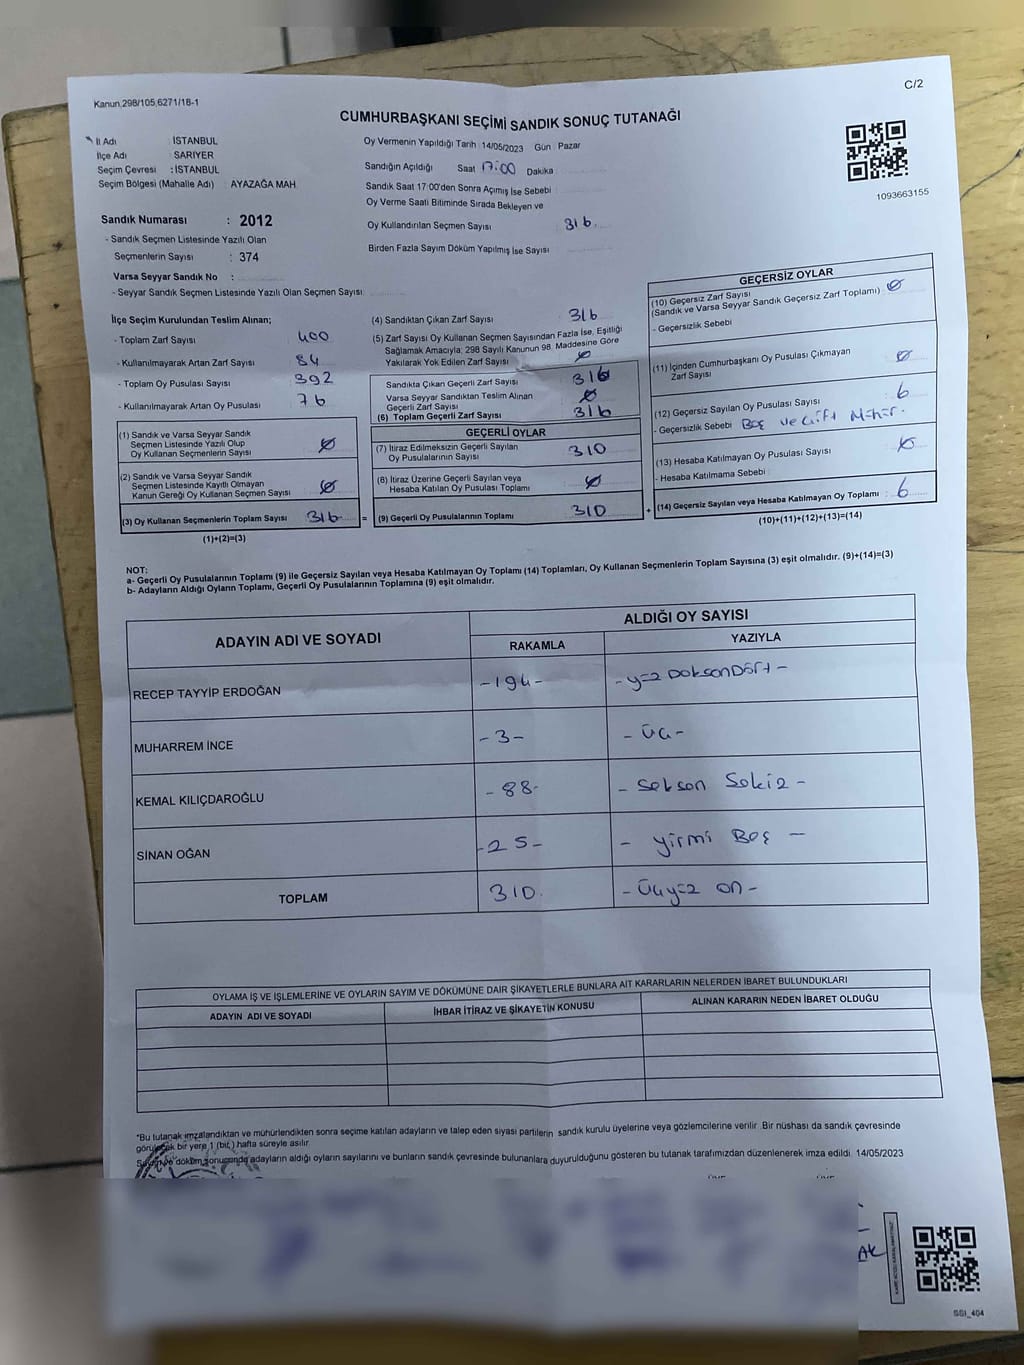 Kanun,298/105,6271/18-1
C/2
CUMHURBAŞKANI SEÇİMİ SANDIK SONUÇ TUTANAĞI
İl Adı : İSTANBUL
İlçe Adı : SARIYER
Seçim Çevresi : İSTANBUL
Seçim Bölgesi (Mahalle Adı) : AYAZAĞA MAH.
Sandık Numarası : 2012
- Sandık Seçmen Listesinde Yazılı Olan
Seçmenlerin Sayısı : 374
Varsa Seyyar Sandık No :
- Seyyar Sandık Seçmen Listesinde Yazılı Olan Seçmen Sayısı:
Oy Vermenin Yapıldığı Tarih : 14/05/2023 Gün : Pazar
Sandığın Açıldığı Saat 17:00 Dakika
Sandık Saat 17:00'den Sonra Açımış İse Sebebi
Oy Verme Saati Bitiminde Sırada Bekleyen ve
Oy Kullandırılan Seçmen Sayısı 316
Birden Fazla Sayım Döküm Yapılmış İse Sayısı
1093663155
İlçe Seçim Kurulundan Teslim Alınan;
- Toplam Zarf Sayısı 400
- Kullanılmayarak Artan Zarf Sayısı 84
- Toplam Oy Pusulası Sayısı 392
- Kullanılmayarak Artan Oy Pusulası 76
(1) Sandık ve Varsa Seyyar Sandık
Seçmen Listesinde Yazılı Olup
Oy Kullanan Seçmenlerin Sayısı Ø
(2) Sandık ve Varsa Seyyar Sandık
Seçmen Listesinde Kayıtlı Olmayan
Kanun Gereği Oy Kullanan Seçmen Sayısı Ø
(3) Oy Kullanan Seçmenlerin Toplam Sayısı 316 =
(1)+(2)=(3)
(4) Sandıktan Çıkan Zarf Sayısı 316
(5) Zarf Sayısı Oy Kullanan Seçmen Sayısından Fazla İse, Eşitliği
Sağlamak Amacıyla; 298 Sayılı Kanunun 98. Maddesine Göre
Yakılarak Yok Edilen Zarf Sayısı Ø
Sandıkta Çıkan Geçerli Zarf Sayısı 316
Varsa Seyyar Sandıktan Teslim Alınan
Geçerli Zarf Sayısı Ø
(6) Toplam Geçerli Zarf Sayısı 316
GEÇERLİ OYLAR
(7) İtiraz Edilmeksizin Geçerli Sayılan
Oy Pusulalarının Sayısı 310
(8) İtiraz Üzerine Geçerli Sayılan veya
Hesaba Katılan Oy Pusulası Toplamı Ø
(9) Geçerli Oy Pusulalarının Toplamı 310 +
GEÇERSİZ OYLAR
(10) Geçersiz Zarf Sayısı
(Sandık ve Varsa Seyyar Sandık Geçersiz Zarf Toplamı) Ø
- Geçersizlik Sebebi
(11) İçinden Cumhurbaşkanı Oy Pusulası Çıkmayan
Zarf Sayısı Ø
(12) Geçersiz Sayılan Oy Pusulası Sayısı : 6
- Geçersizlik Sebebi Boş ve Çift Mühür.
(13) Hesaba Katılmayan Oy Pusulası Sayısı Ø
- Hesaba Katılmama Sebebi
(14) Geçersiz Sayılan veya Hesaba Katılmayan Oy Toplamı : 6
(10)+(11)+(12)+(13)=(14)
NOT:
a- Geçerli Oy Pusulalarının Toplamı (9) ile Geçersiz Sayılan veya Hesaba Katılmayan Oy Toplamı (14) Toplamları, Oy Kullanan Seçmenlerin Toplam Sayısına (3) eşit olmalıdır. (9)+(14)=(3)
b- Adayların Aldığı Oyların Toplamı, Geçerli Oy Pusulalarının Toplamına (9) eşit olmalıdır.
ADAYIN ADI VE SOYADI
ALDIĞI OY SAYISI
RAKAMLA YAZIYLA
RECEP TAYYİP ERDOĞAN -194- -yüz DoksanDört-
MUHARREM İNCE -3- -üç-
KEMAL KILIÇDAROĞLU -88- -Seksen Sekiz-
SİNAN OĞAN -25- - yirmi Beş -
TOPLAM 310. -üçyüz on-
OYLAMA İŞ VE İŞLEMLERİNE VE OYLARIN SAYIM VE DÖKÜMÜNE DAİR ŞİKAYETLERLE BUNLARA AİT KARARLARIN NELERDEN İBARET BULUNDUKLARI
ADAYIN ADI VE SOYADI İHBAR İTİRAZ VE ŞİKAYETİN KONUSU ALINAN KARARIN NEDEN İBARET OLDUĞU
*Bu tutanak imzalandıktan ve mühürlendikten sonra seçime katılan adayların ve talep eden siyasi partilerin sandık kurulu üyelerine veya gözlemcilerine verilir. Bir nüshası da sandık çevresinde
görülecek bir yere 1 (bir) hafta süreyle asılır.
Sayım ve döküm sonucunda adayların aldığı oyların sayılarını ve bunların sandık çevresinde bulunanlara duyurulduğunu gösteren bu tutanak tarafımızdan düzenlenerek imza edildi. 14/05/2023
AK
SSI_404